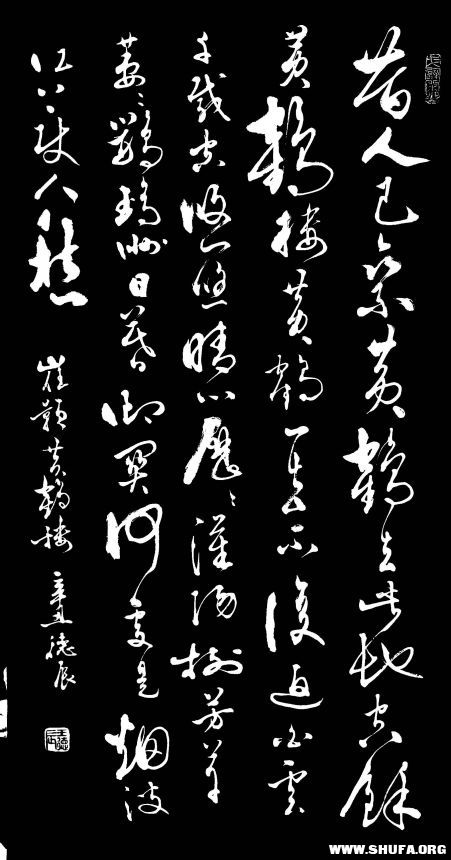 昔人已乘黄鶴去此地空餘
黄鶴樓黄鶴一去不復返白雲
千載空悠悠晴川歷〻漢陽樹芳草
萋〻鸚鵡洲日暮鄉關何處是烟波
江上使人愁
崔顥黄鶴樓 辛丑德辰
WWW.SHUFA.ORG